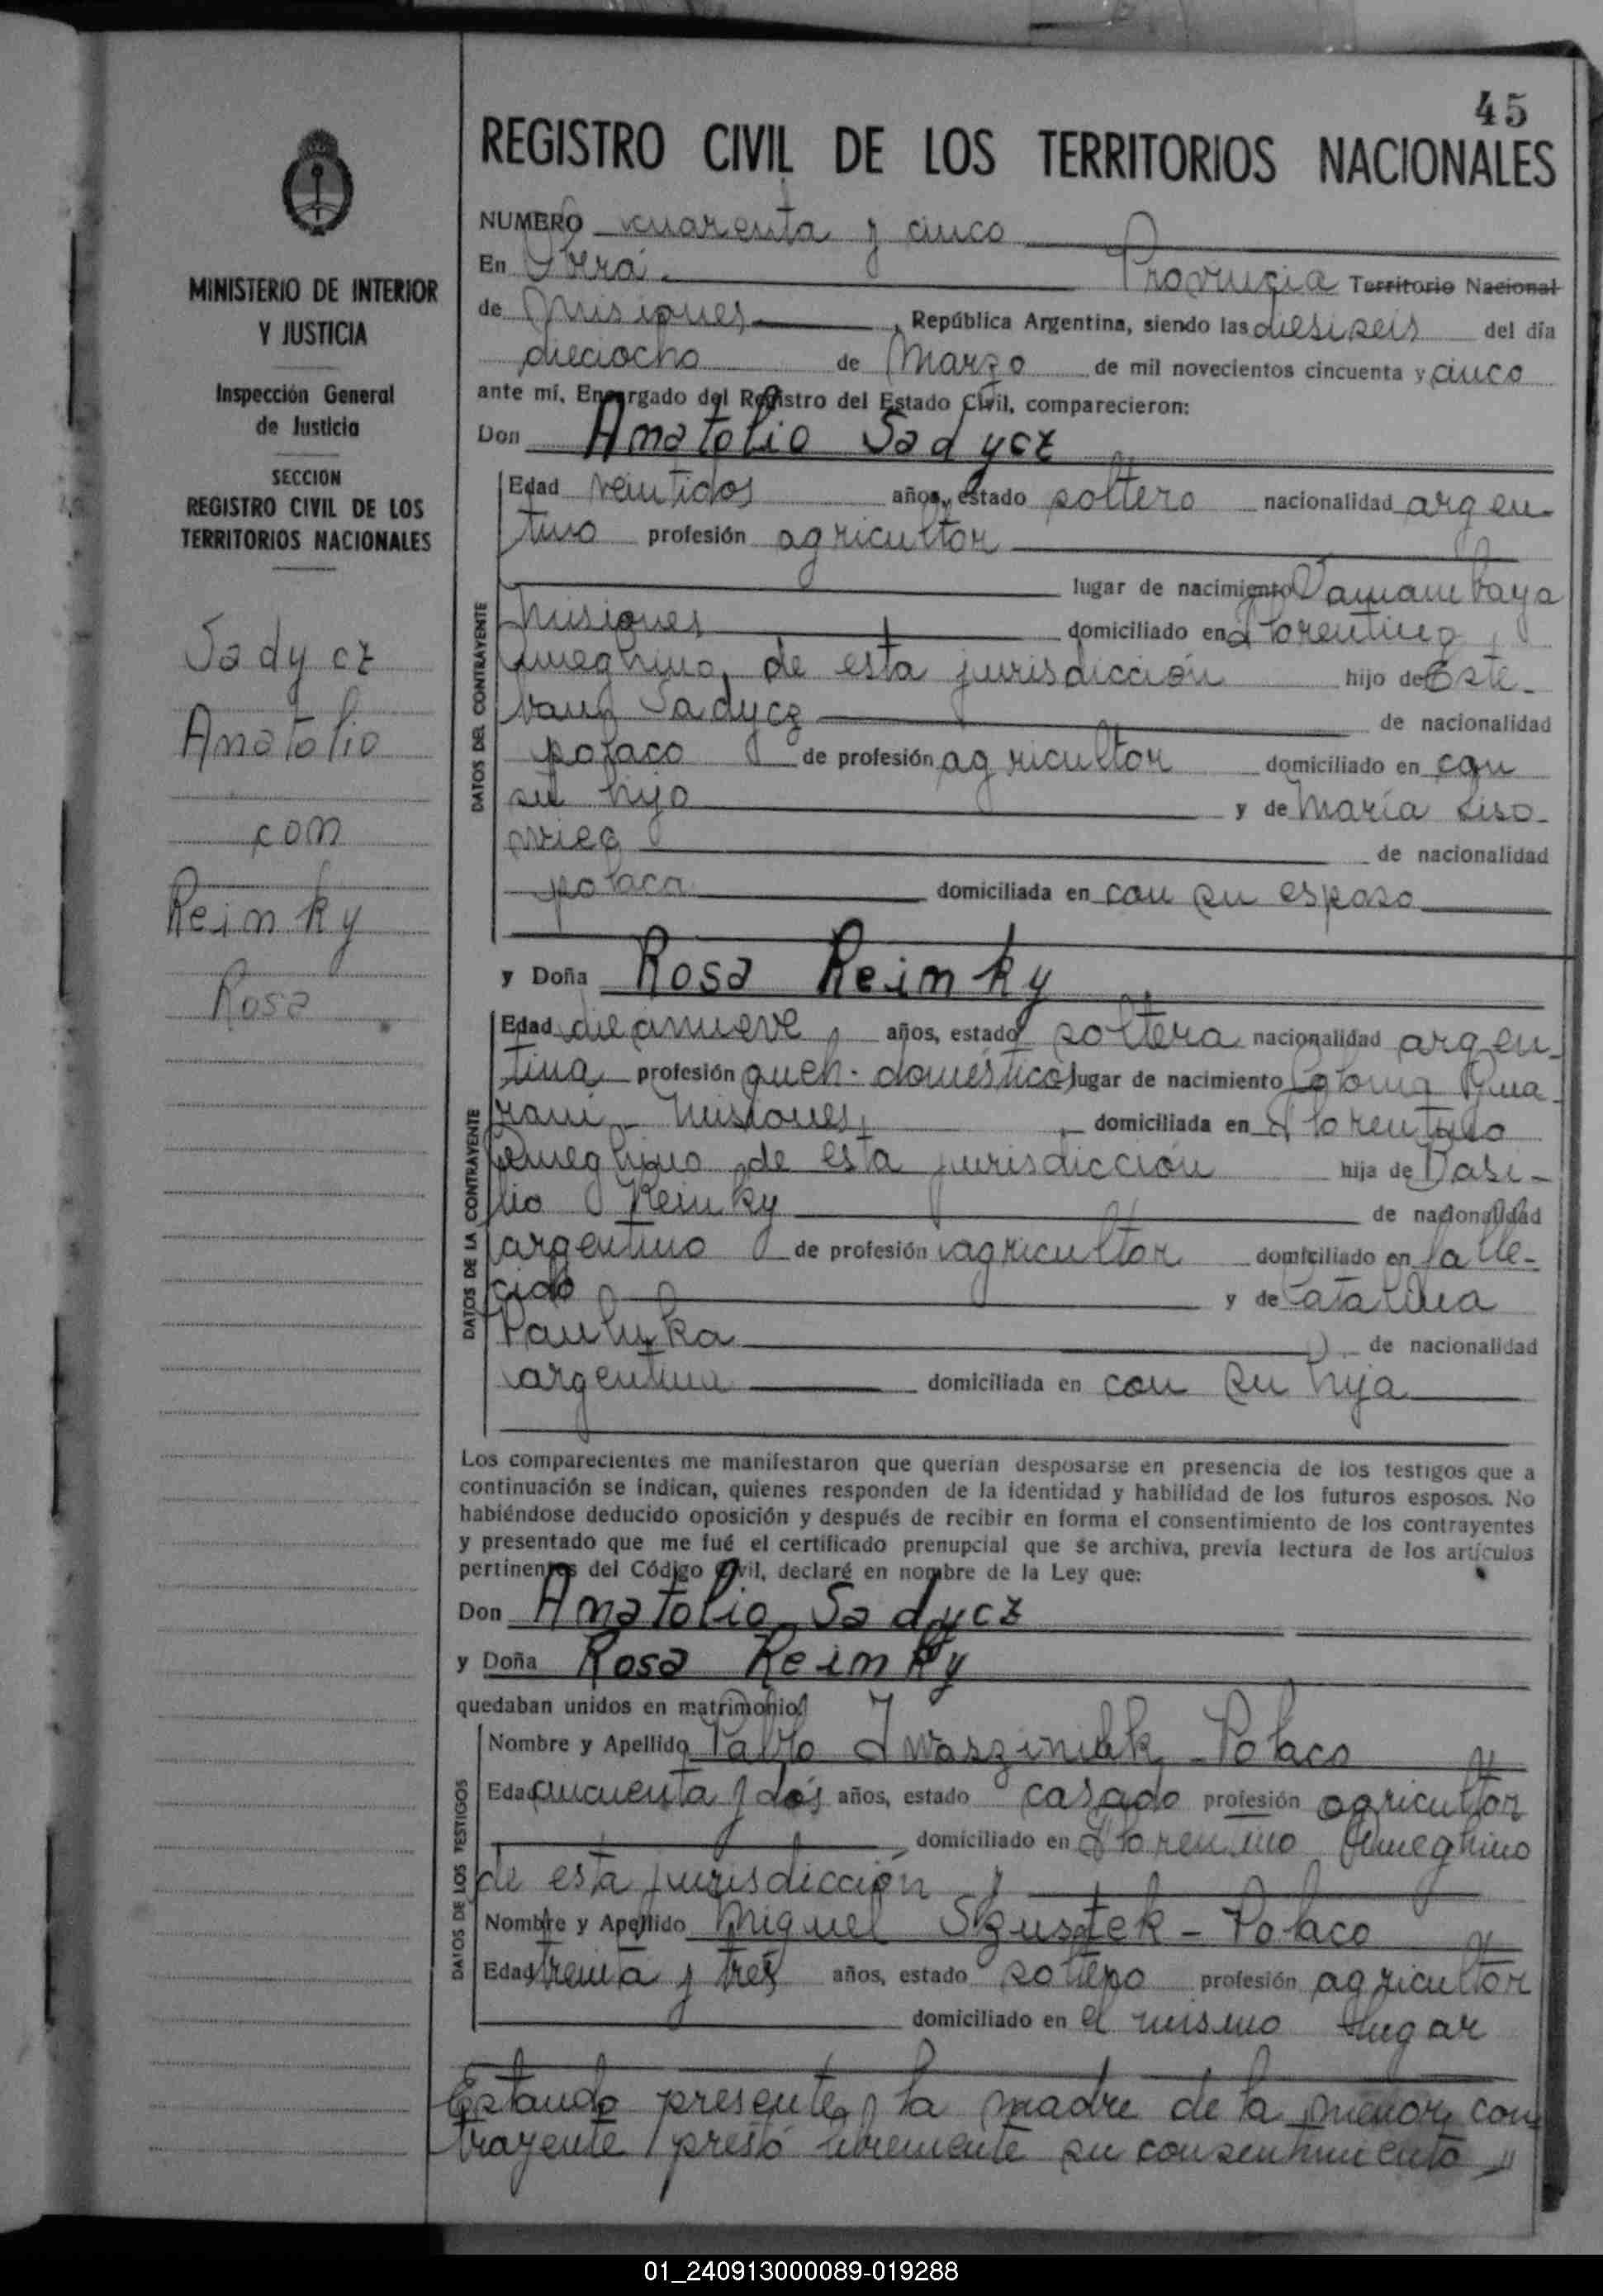 45
REGISTRO CIVIL DE LOS TERRITORIOS NACIONALES
MINISTERIO DE INTERIOR
Y JUSTICIA
Inspección General
de Justicia
SECCION
REGISTRO CIVIL DE LOS
TERRITORIOS NACIONALES
Sadycz
Anatolio
con
Reinky
Rosa
NUMERO cuarenta y cinco
En Oberá. Provincia Territorio Nacional
de Misiones, República Argentina, siendo las diesiseis del día
dieciocho de Marzo de mil novecientos cincuenta y cinco
ante mí, Encargado del Registro del Estado Civil, comparecieron:
Don Anatolio Sadycz
DATOS DEL CONTRAYENTE
Edad veintidos años, estado soltero nacionalidad argen-
tino profesión agricultor
lugar de nacimiento
Misiones domiciliado en Florentino
Ameghino, de esta jurisdicción hijo de Este-
ban Sadycz de nacionalidad
polaco de profesión agricultor domiciliado en con
su hijo y de María Liso-
de nacionalidad
polaca domiciliada en con su esposo
y Doña Rosa Reinky
DATOS DE LA CONTRAYENTE
Edad diecinueve años, estado soltera nacionalidad argen-
tina profesión queh. domésticos lugar de nacimiento Colonia Gua-
raní - Misiones, domiciliada en Florentino
Ameghino de esta jurisdicción hija de Basi-
lio Reinky de nacionalidad
argentino de profesión agricultor domiciliado en falle-
cido y de Catalina
Pauluka de nacionalidad
argentina domiciliada en con su hija
Los comparecientes me manifestaron que querían desposarse en presencia de los testigos que a
continuación se indican, quienes responden de la identidad y habilidad de los futuros esposos. No
habiéndose deducido oposición y después de recibir en forma el consentimiento de los contrayentes
y presentado que me fué el certificado prenupcial que se archiva, previa lectura de los artículos
pertinentes del Código Civil, declaré en nombre de la Ley que:
Don Anatolio Sadycz
y Doña Rosa Reinky
quedaban unidos en matrimonio.
DATOS DE LOS TESTIGOS
Nombre y Apellido Pablo Iwasziniak - Polaco
Edad cincuenta y dos años, estado casado profesión agricultor
domiciliado en Florentino Ameghino
de esta jurisdicción y
Nombre y Apellido Miguel Szustek - Polaco
Edad treinta y tres años, estado soltero profesión agricultor
domiciliado en el mismo lugar
Estando presente la madre de la menor con
trayente prestó libremente su consentimiento
01_240913000089-019288